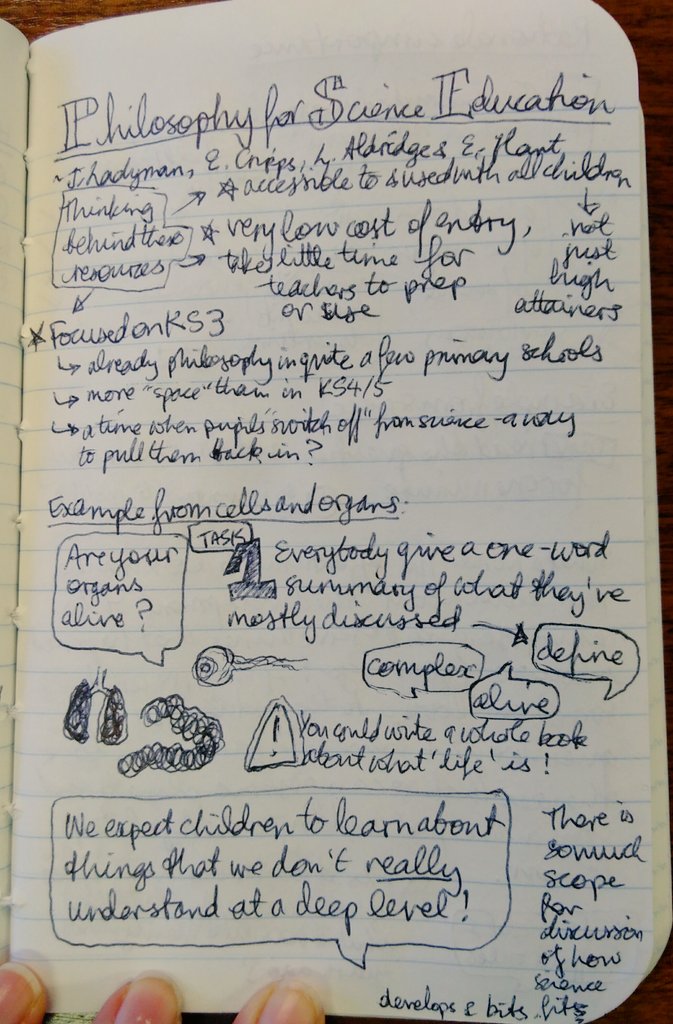 Philosophy for Science Education
~ J. Ladyman, E. Cripps, L. Aldridge & E. Hant
Thinking
behind these
resources
* accessible to & used with all children
not
just
high
attainers
* very low cost of entry,
take little time for
teachers to prep
or use
* Focused on KS3
↳ already philosophy in quite a few primary schools
↳ more "space" than in KS4/5
↳ a time when pupils "switch off" from science - a way
to pull them back in?
Example from cells and organs:
Are your
organs
alive?
TASK
1 Everybody give a one-word
summary of what they've
mostly discussed
define
complex
alive
! You could write a whole book
about what 'life' is!
We expect children to learn about
things that we don't really
understand at a deep level!
There is
so much
scope
for
discussion
of how
science
develops & bits fits